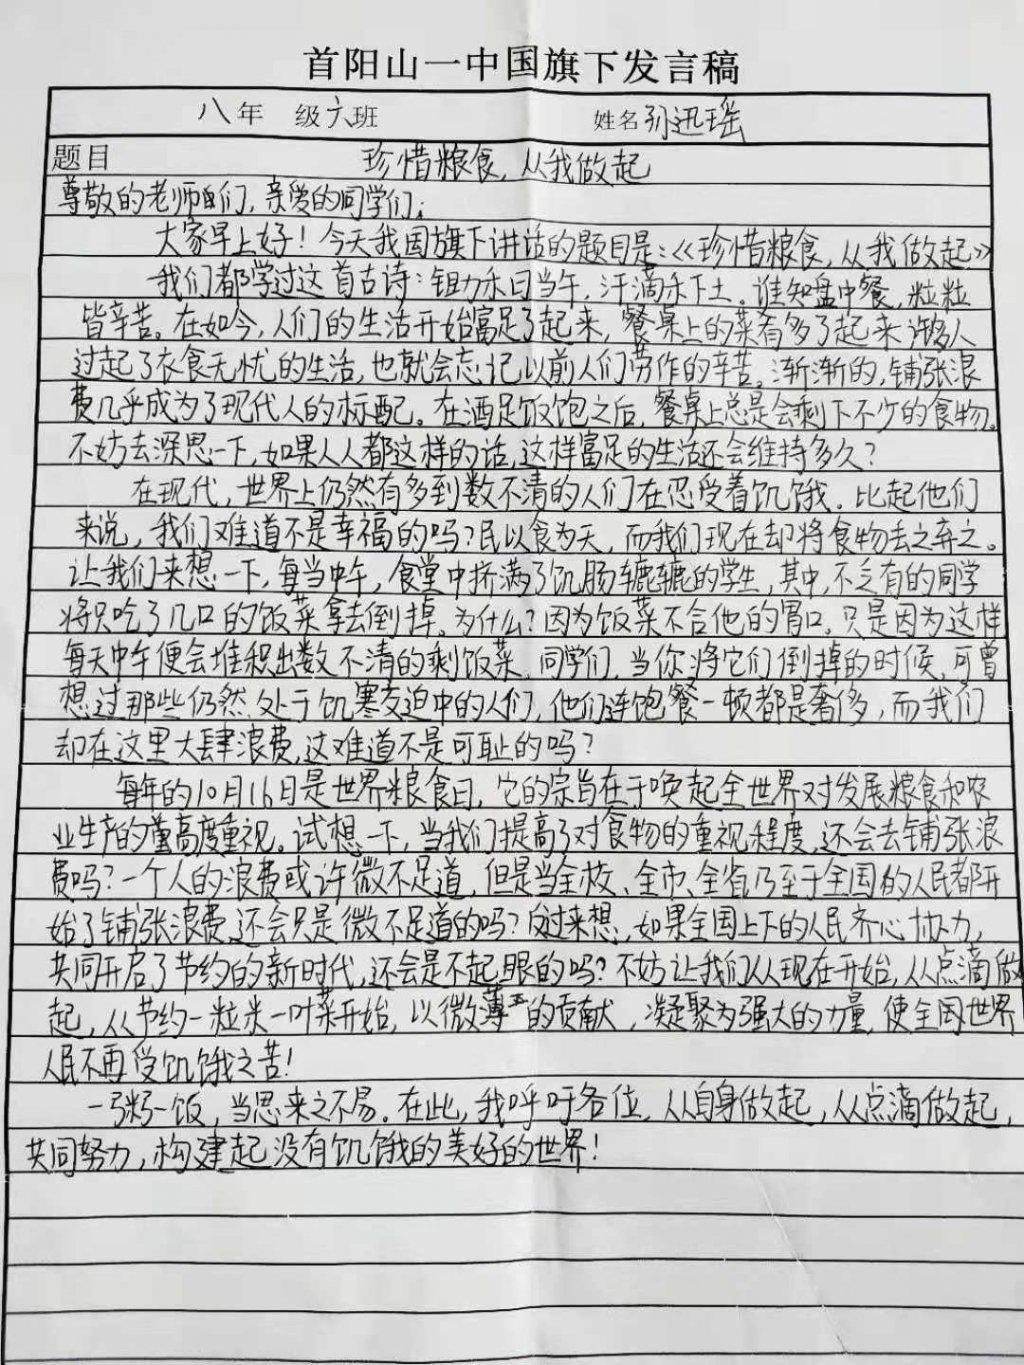 首阳山一中国旗下发言稿
八年 级六班 姓名孙迅瑶
题目 珍惜粮食,从我做起
尊敬的老师们,亲爱的同学们:
大家早上好!今天我国旗下讲话的题目是:《珍惜粮食,从我做起》
我们都学过这首古诗:锄禾日当午,汗滴禾下土。谁知盘中餐,粒粒
皆辛苦。在如今,人们的生活开始富足了起来,餐桌上的菜肴多了起来许多人
过起了衣食无忧的生活,也就会忘记以前人们劳作的辛苦。渐渐的,铺张浪
费几乎成为了现代人的标配。在酒足饭饱之后,餐桌上总是会剩下不少的食物。
不妨去深思一下,如果人人都这样的话,这样富足的生活还会维持多久?
在现代,世界上仍然有多到数不清的人们在忍受着饥饿。比起他们
来说,我们难道不是幸福的吗?民以食为天,而我们现在却将食物去之弃之。
让我们来想一下,每当中午,食堂中挤满了饥肠辘辘的学生,其中,不乏有的同学
将只吃了几口的饭菜拿去倒掉。为什么?因为饭菜不合他的胃口。只是因为这样
每天中午便会堆积出数不清的剩饭菜。同学们,当你将它们倒掉的时候,可曾
想过那些仍然处于饥寒交迫中的人们,他们连饱餐一顿都是奢侈,而我们
却在这里大肆浪费,这难道不是可耻的吗?
每年的10月16日是世界粮食日,它的宗旨在于唤起全世界对发展粮食和农
业生产的高度重视。试想一下,当我们提高了对食物的重视程度,还会去铺张浪
费吗?一个人的浪费或许微不足道,但是当全校、全市、全省乃至于全国的人民都开
始了铺张浪费,还会只是微不足道的吗?反过来想,如果全国上下的人民齐心协力,
共同开启了节约的新时代,还会是不起眼的吗?不妨让我们从现在开始,从点滴做
起,从节约一粒米一叶菜开始,以微薄的贡献,凝聚为强大的力量,使全国世界
人民不再受饥饿之苦!
一粥一饭,当思来之不易。在此,我呼吁各位,从自身做起,从点滴做起,
共同努力,构建起没有饥饿的美好的世界!